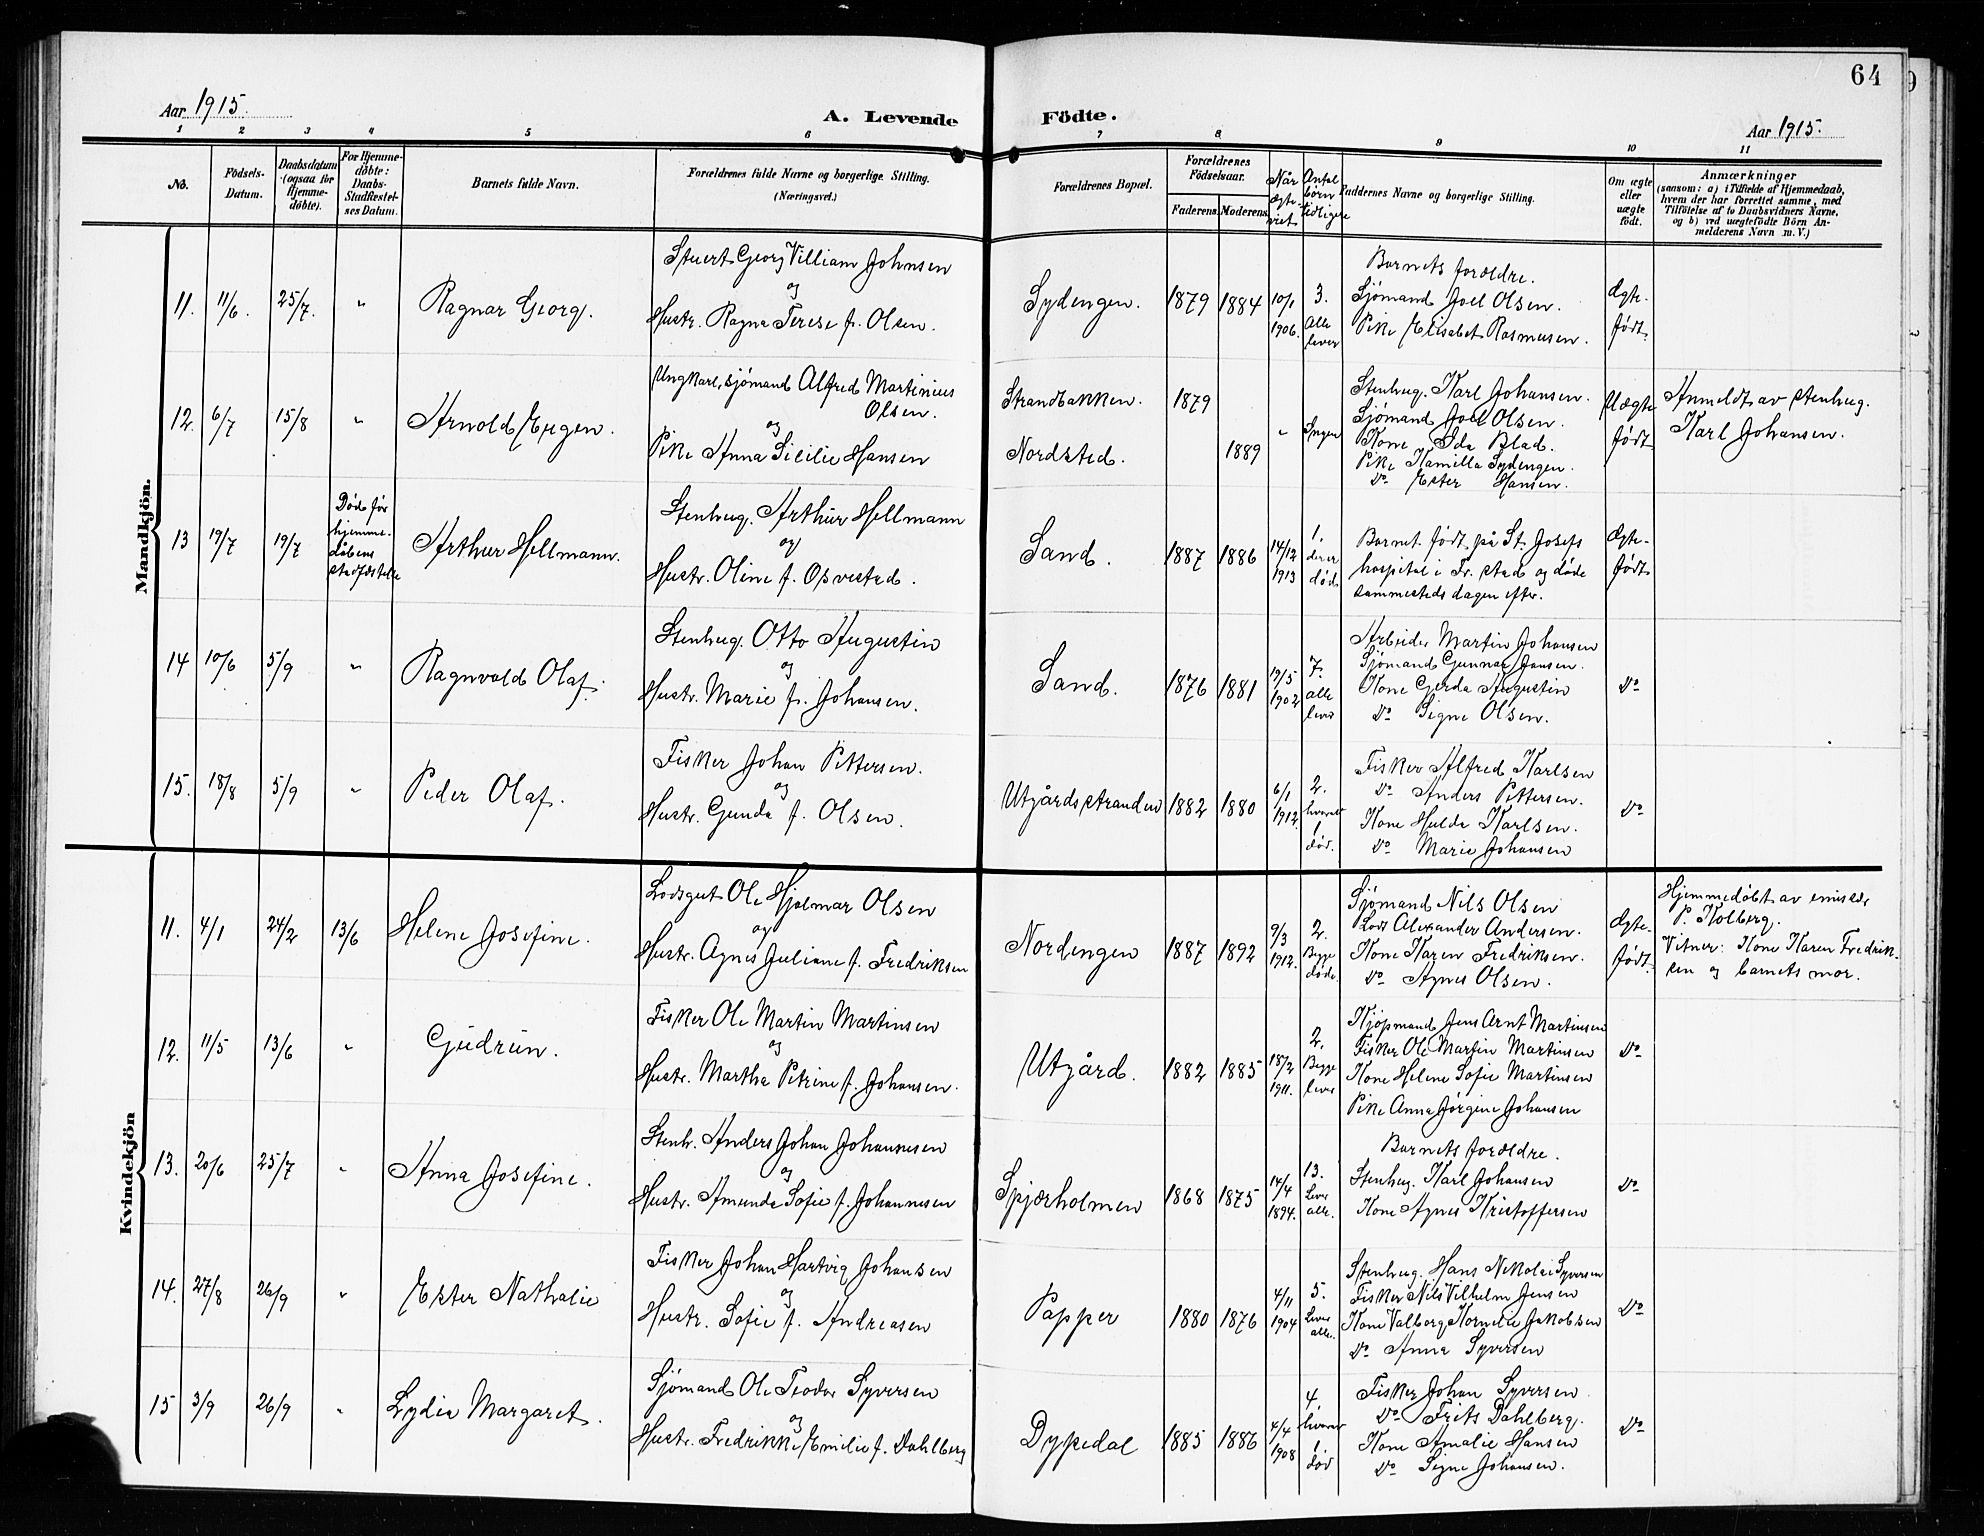 64
Aar 1915.
A. Levende Födte.
Aar 1915.
1 2 3 4 5 6 7 8 9 10 11
No.
Födsels-Datum.
Daabsdatum (ogsaa for Hjemme-döbte).
For Hjemme-döbte: Daabs-Stadfæstel-ses Datum.
Barnets fulde Navn.
Forældrenes fulde Navne og borgerlige Stilling. (Næringsvei.)
Forældrenes Bopæl.
Forældrenes Födselsaar.
Faderens. Moderens.
Når ægte-viet
Antal børn tidligere
Faddernes Navne og borgerlige Stilling.
Om ægte eller uægte födt.
Anmærkninger
(saasom: a) i Tilfælde af Hjemmedaab, hvem der har forrettet samme, med Tilföielse af to Daabsvidners Navne, og b) ved uægtefödte Börn An-melderens Navn m. V.)
Mandkjön.
11. 11/6. 25/7. " Ragnar Georg.
Stuert Georg Villiam Johnsen
og
Hustr. Ragna Terese f. Olsen.
Sydengen. 1879 1884 10/1 1906. 3. Alle lever
Barnets forældre.
Sjömand Joel Olsen.
Pike Elisabet Rasmusen.
Ægte-født.
12. 6/7 15/8 " Arnold Eugen.
Ungkarl, sjömand Alfred Martinius
Olsen.
og
Pike Anna Sicilie Hansen
Strandbakken. 1879
Nordsted. 1889 " Ingen
Stenhug. Karl Johansen.
Sjömand Joel Olsen.
Kone Ida Blad.
Pike Kamilla Sydengen.
Do Ester Hansen.
Uægte født
Anmeldt av stenhug.
Karl Johansen.
13 19/7 19/7 Døde før hjemme-dåbens stadfæstelse Arthur Hellmann.
Stenhug. Arthur Hellmann
og
Hustr. Oline f. Opvestad.
Sand. 1887 1886 14/12 1913 1. der er død
Barnet født på St. Josefs
hospital i Fr. stad og døde
sammesteds dagen efter.
Ægte-født
14 10/6 5/9 " Ragnvald Olaf.
Stenhug. Otto Augustin
og
Hustr. Marie f. Johansen.
Sand. 1876 1881 19/5 1902 7. alle lever
Arbeider Martin Johansen
Sjömand Gunnar Jansen.
Kone Gerda Augustin
Do Signe Olsen.
Do
15. 18/8 5/9 " Peder Olaf.
Fisker Johan Pettersen.
og
Hustr. Gunda f. Olsen.
Utgårdsstranden 1882 1880 6/1 1912. 2. hvorav 1 død.
Fisker Alfred Karlsen
Do Anders Pettersen.
Kone Hulda Karlsen.
Do Marie Johansen
Do
Kvindekjön
11. 4/1 24/2 13/6 Helene Josefine.
Lodsgut Ole Hjalmar Olsen
og
Hustr. Agnes Juliane f. Fredriksen
Nordengen 1887 1892 9/3 1912. 2. Begge døde.
Sjömand Nils Olsen
Lods Alexander Andersen.
Kone Karen Fredriksen.
Do Agnes Olsen.
Ægte-født.
Hjemmedøbt av emissær
P. Kolberg.
Vitner: Kone Karen Fredrik-
sen og barnets mor.
12. 11/5 13/6 " Gudrun.
Fisker Ole Martin Martinsen
og
Hustr. Martha Petrine f. Johansen.
Utgård. 1882 1885 18/2 1911. 2. Begge lever
Kjøpmand Jens Arnt Martinsen
Fisker Ole Martin Martinsen
Kone Helene Sofie Martinsen
Pike Anna Jørgine Johansen
Do
13. 20/6 25/7 " Anna Josefine.
Stenh. Anders Johan Johannesen
og
Hustr. Amanda Sofie f. Johannesen
Spjærholmen 1868 1875 14/4 1894. 13. Lever alle.
Barnets forældre.
Stenhug. Karl Johansen
Kone Agnes Kristoffersen
Do
14. 27/8 26/9 " Ester Nathalie
Fisker Johan Hartvig Johansen
og
Hustr. Sofie f. Andreasen
Papper 1880 1876 4/11 1904 5. Lever alle.
Stenhug. Hans Nikolai Syversen
Fisker Nils Vilhelm Jensen
Kone Valborg Kornelie Jakobsen
Do Anna Syversen
Do
15 3/9 26/9 " Lydia Margaret.
Sjömand Ole Teodor Syversen
og
Hustr. Fredrikke Emilie f. Dahlberg
Dypedal 1885 1886 4/4 1908 4. hvorav 1 død
Fisker Johan Syversen
Do Frits Dahlberg.
Kone Amalie Hansen
Do Signe Johansen.
Do